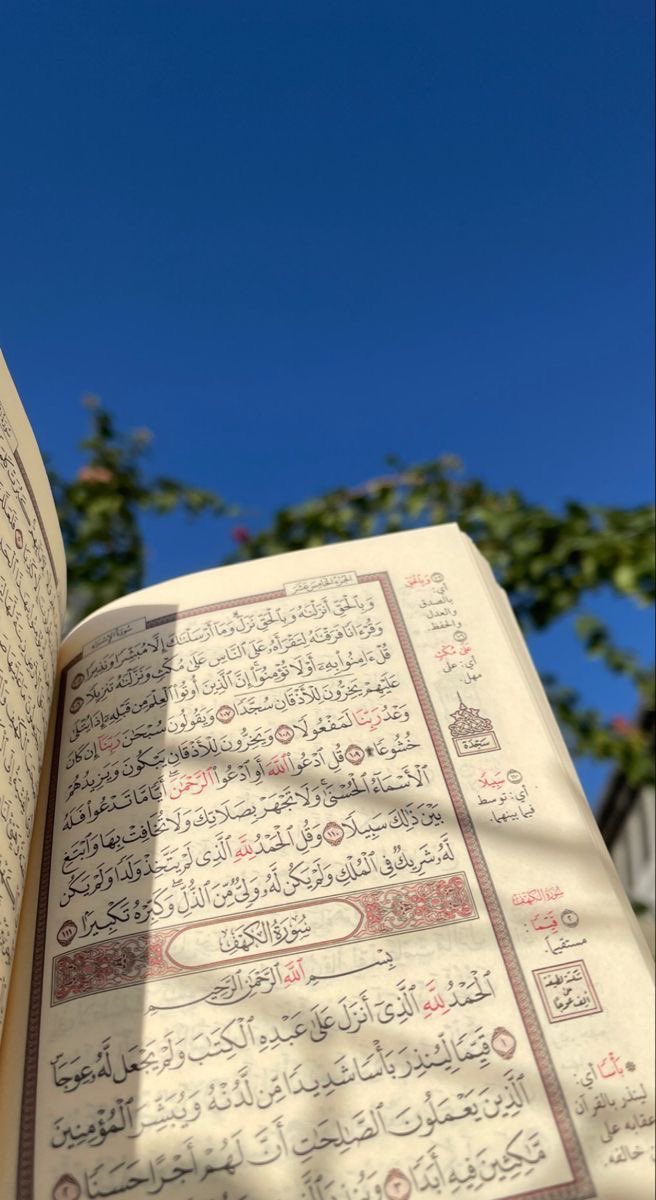 الجزء الخامس عشر
سورة الإسراء
وَبِٱلْحَقِّ أَنزَلْنَٰهُ وَبِٱلْحَقِّ نَزَلَ وَمَآ أَرْسَلْنَٰكَ إِلَّا مُبَشِّرًا وَنَذِيرًا ١٠٥
وَقُرْءَانًا فَرَقْنَٰهُ لِتَقْرَأَهُۥ عَلَى ٱلنَّاسِ عَلَىٰ مُكْثٍ وَنَزَّلْنَٰهُ تَنزِيلًا ١٠٦
قُلْ ءَامِنُوا۟ بِهِۦٓ أَوْ لَا تُؤْمِنُوٓا۟ إِنَّ ٱلَّذِينَ أُوتُوا۟ ٱلْعِلْمَ مِن قَبْلِهِۦٓ إِذَا يُتْلَىٰ
عَلَيْهِمْ يَخِرُّونَ لِلْأَذْقَانِ سُجَّدًا ١٠٧ وَيَقُولُونَ سُبْحَٰنَ رَبِّنَآ إِن كَانَ
وَعْدُ رَبِّنَا لَمَفْعُولًا ١٠٨ وَيَخِرُّونَ لِلْأَذْقَانِ يَبْكُونَ وَيَزِيدُهُمْ
خُشُوعًا ۩ ١٠٩ قُلِ ٱدْعُوا۟ ٱللَّهَ أَوِ ٱدْعُوا۟ ٱلرَّحْمَٰنَ أَيًّا مَّا تَدْعُوا۟ فَلَهُ
ٱلْأَسْمَآءُ ٱلْحُسْنَىٰ وَلَا تَجْهَرْ بِصَلَاتِكَ وَلَا تُخَافِتْ بِهَا وَٱبْتَغِ
بَيْنَ ذَٰلِكَ سَبِيلًا ١١٠ وَقُلِ ٱلْحَمْدُ لِلَّهِ ٱلَّذِى لَمْ يَتَّخِذْ وَلَدًا وَلَمْ يَكُن
لَّهُۥ شَرِيكٌ فِى ٱلْمُلْكِ وَلَمْ يَكُن لَّهُۥ وَلِىٌّ مِّنَ ٱلذُّلِّ وَكَبِّرْهُ تَكْبِيرًۢا ١١١
سُورَةُ الْكَهْفِ
بِسْمِ ٱللَّهِ ٱلرَّحْمَٰنِ ٱلرَّحِيمِ
ٱلْحَمْدُ لِلَّهِ ٱلَّذِىٓ أَنزَلَ عَلَىٰ عَبْدِهِ ٱلْكِتَٰبَ وَلَمْ يَجْعَل لَّهُۥ عِوَجَا
١ قَيِّمًا لِّيُنذِرَ بَأْسًا شَدِيدًا مِّن لَّدُنْهُ وَيُبَشِّرَ ٱلْمُؤْمِنِينَ
ٱلَّذِينَ يَعْمَلُونَ ٱلصَّٰلِحَٰتِ أَنَّ لَهُمْ أَجْرًا حَسَنًا ٢
مَّٰكِثِينَ فِيهِ أَبَدًا ٣ وَيُنذِرَ ٱلَّذِينَ
وَبِالْحَقِّ
أي:
بالصدق
والعدل
والحفظ.
عَلَىٰ مُكْثٍ
أي: على
مهل.
سَجْدَة
سَبِيلًا
أي: توسط
فيما بينهما.
سُورَةُ الْكَهْفِ
قَيِّمًا:
مستقيماً.
بَأْسًا أي:
لينذر بالقرآن
عقابه على
خالقه.